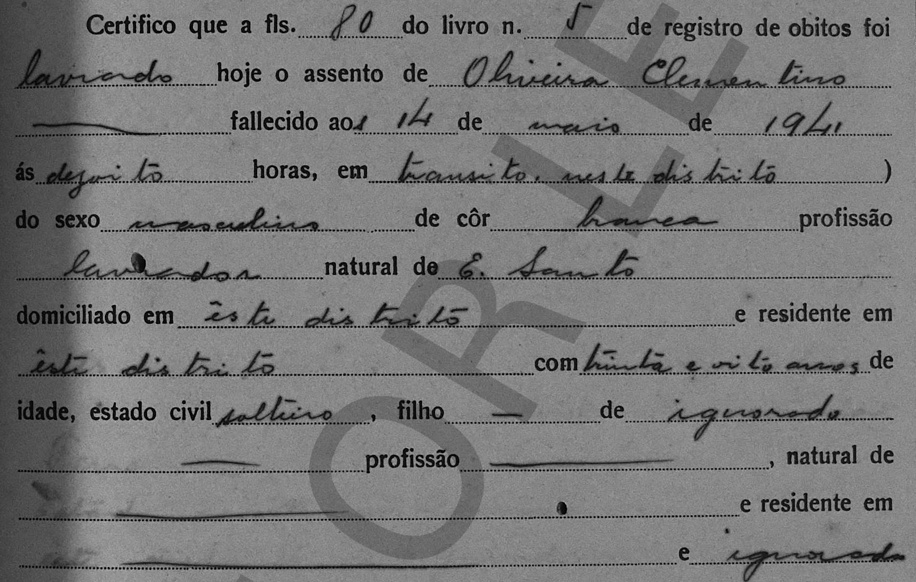 Certifico que a fls. 80 do livro n. 5 de registro de obitos foi
lavrado hoje o assento de Oliveira Clementino
fallecido aos 14 de maio de 1941
ás dezoito horas, em transito, neste distrito )
do sexo masculino de côr branca profissão
lavrador natural de E. Santo
domiciliado em êste distrito e residente em
êste distrito com trinta e oito anos de
idade, estado civil solteiro, filho — de ignorado
— profissão —, natural de
— e residente em
— e ignorada